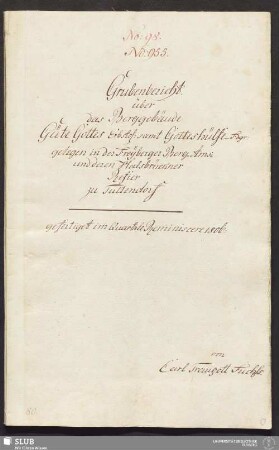 No: 98.
No. 955.
Grubenbericht
über
das Berggebäude
Güte Gottes Erbst. samt Gottes hülfe Fgr.
gelegen in der Freyberger Berg Amts
und deren Halsbrückner
Refier
zu Tuttendorf
gefertiget im Quartal Reminiscere 1806.
von
Carl Traugott
SLUB
Wir führen Wissen.